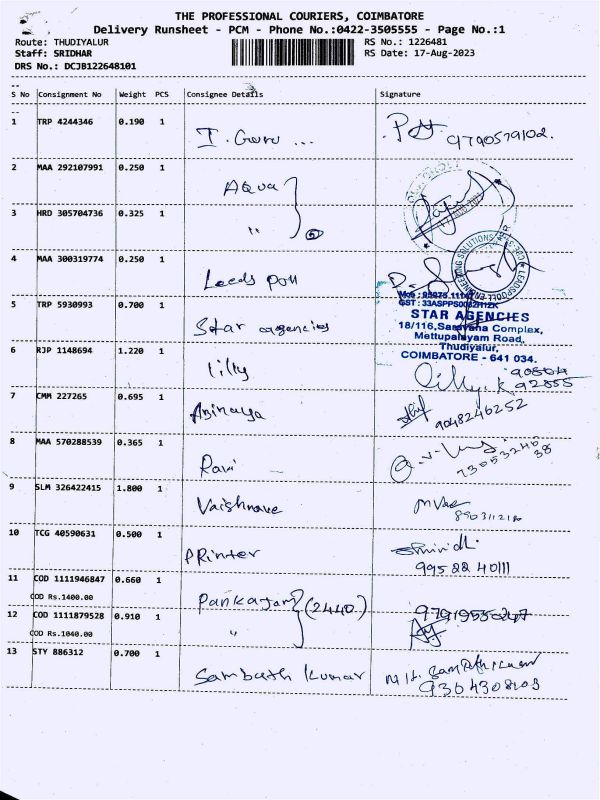 THE PROFESSIONAL COURIERS, COIMBATORE
Delivery Runsheet - PCM - Phone No.:0422-3505555 - Page No.:1
Route: THUDIYALUR RS No.: 1226481
Staff: SRIDHAR RS Date: 17-Aug-2023
DRS No.: DCJB122648101
S No Consignment No Weight PCS Consignee Details Signature
1 TRP 4244346 0.190 1 T. Guru ... 9790579102.
2 MAA 292107991 0.250 1 AQua
3 HRD 305704736 0.325 1 "
4 MAA 300319774 0.250 1 Leeds poll
5 TRP 5930993 0.700 1 Star agencies
STAR AGENCIES
18/116,Saravana Complex,
Mettupalayam Road,
Thudiyalur,
COIMBATORE - 641 034.
6 RJP 1148694 1.220 1 Lilly Lilly.K
7 CMM 227265 0.695 1 Abinaya 9048246252
8 MAA 570288539 0.365 1 Ravi
9 SLM 326422415 1.800 1 Vaishnave
10 TCG 40590631 0.500 1 PRinter
9958840111
11 COD 1111946847 0.660 1 Pankajam (2440)
COD Rs.1400.00
12 COD 1111879528 0.910 1 "
COD Rs.1040.00
13 STY 886312 0.700 1 Sambath Kumar
9304308103